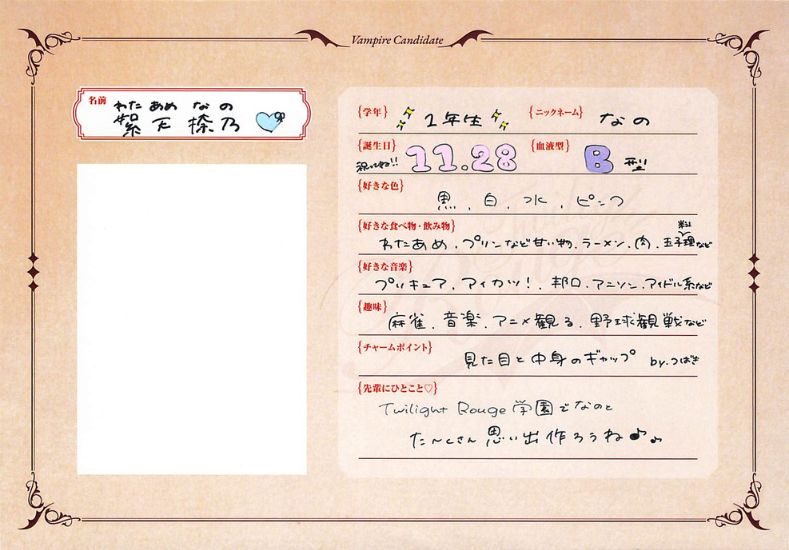 Vampire Candidate
名前
わた あめ な の
天 榛乃
{学年}
1年生
{ニックネーム}
なの
{誕生日}
祝ってね!!
11.28
{血液型}
B型
{好きな色}
黒、白、水、ピンク
{好きな食べ物・飲み物}
わたあめ、プリンなど甘い物、ラーメン、肉、玉子料理など
{好きな音楽}
プリキュア、アイカツ!、邦ロ、アニソン、アイドル系など
{趣味}
麻雀、音楽、アニメ観る、野球観戦など
{チャームポイント}
見た目と中身のギャップ by.つばき
{先輩にひとこと♡}
Twilight Rouge 学園でなのと
たくさん思い出作ろうね♪♪